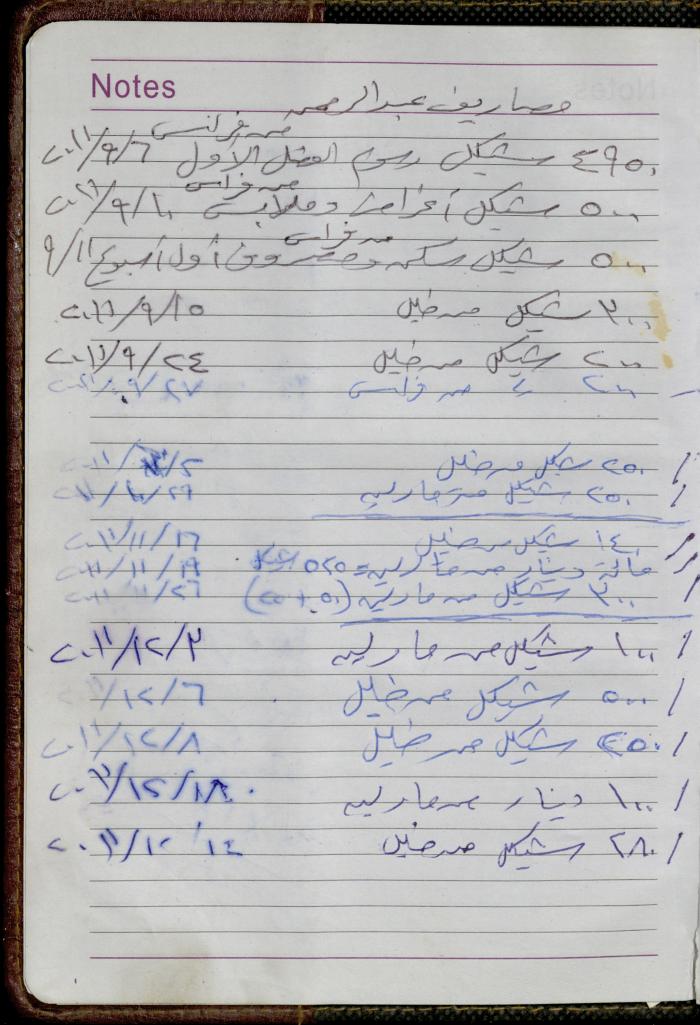 Notes
مصاريف عبدالرحمن
٤٩٥٠ شيكل رسوم الفصل الأول من فرانسي ٢٠١١/٩/٦
٥٠٠ شيكل أغراض وملابس من فرانسي ٢٠١١/٩/١٠
٥٠٠ شيكل سكن ومصروف أول أسبوع من فرانسي ٩/١١
٣٠٠ شيكل من خليل ٢٠١١/٩/١٥
٢٠٠ شيكل من خليل ٢٠١١/٩/٢٤
٢٠٠ من فرانسي ٢٠١١/٩/٢٧
٢٥٠ شيكل من خليل ٢٠١١/ /٢
٢٥٠ شيكل من مارليه ٢٠١١/١٠/٢٩
١٤٠ شيكل من خليل ٢٠١١/١١/١٦
مائة دينار من مارليه = ٥٢٥ شيكل ٢٠١١/١١/١٩
٣٠٠ شيكل من مارليه ٢٠١١/١١/٢٦
١٠٠ شيكل من مارليه ٢٠١١/١٢/٣
٥٠٠ شيكل من خليل ١٢/٦
٤٥٠ شيكل من خليل ٢٠١١/١٢/٨
١٠٠ دينار من مارليه ٢٠١١/١٢/
٢٨٠ شيكل من خليل ٢٠١١/١٢/١٤